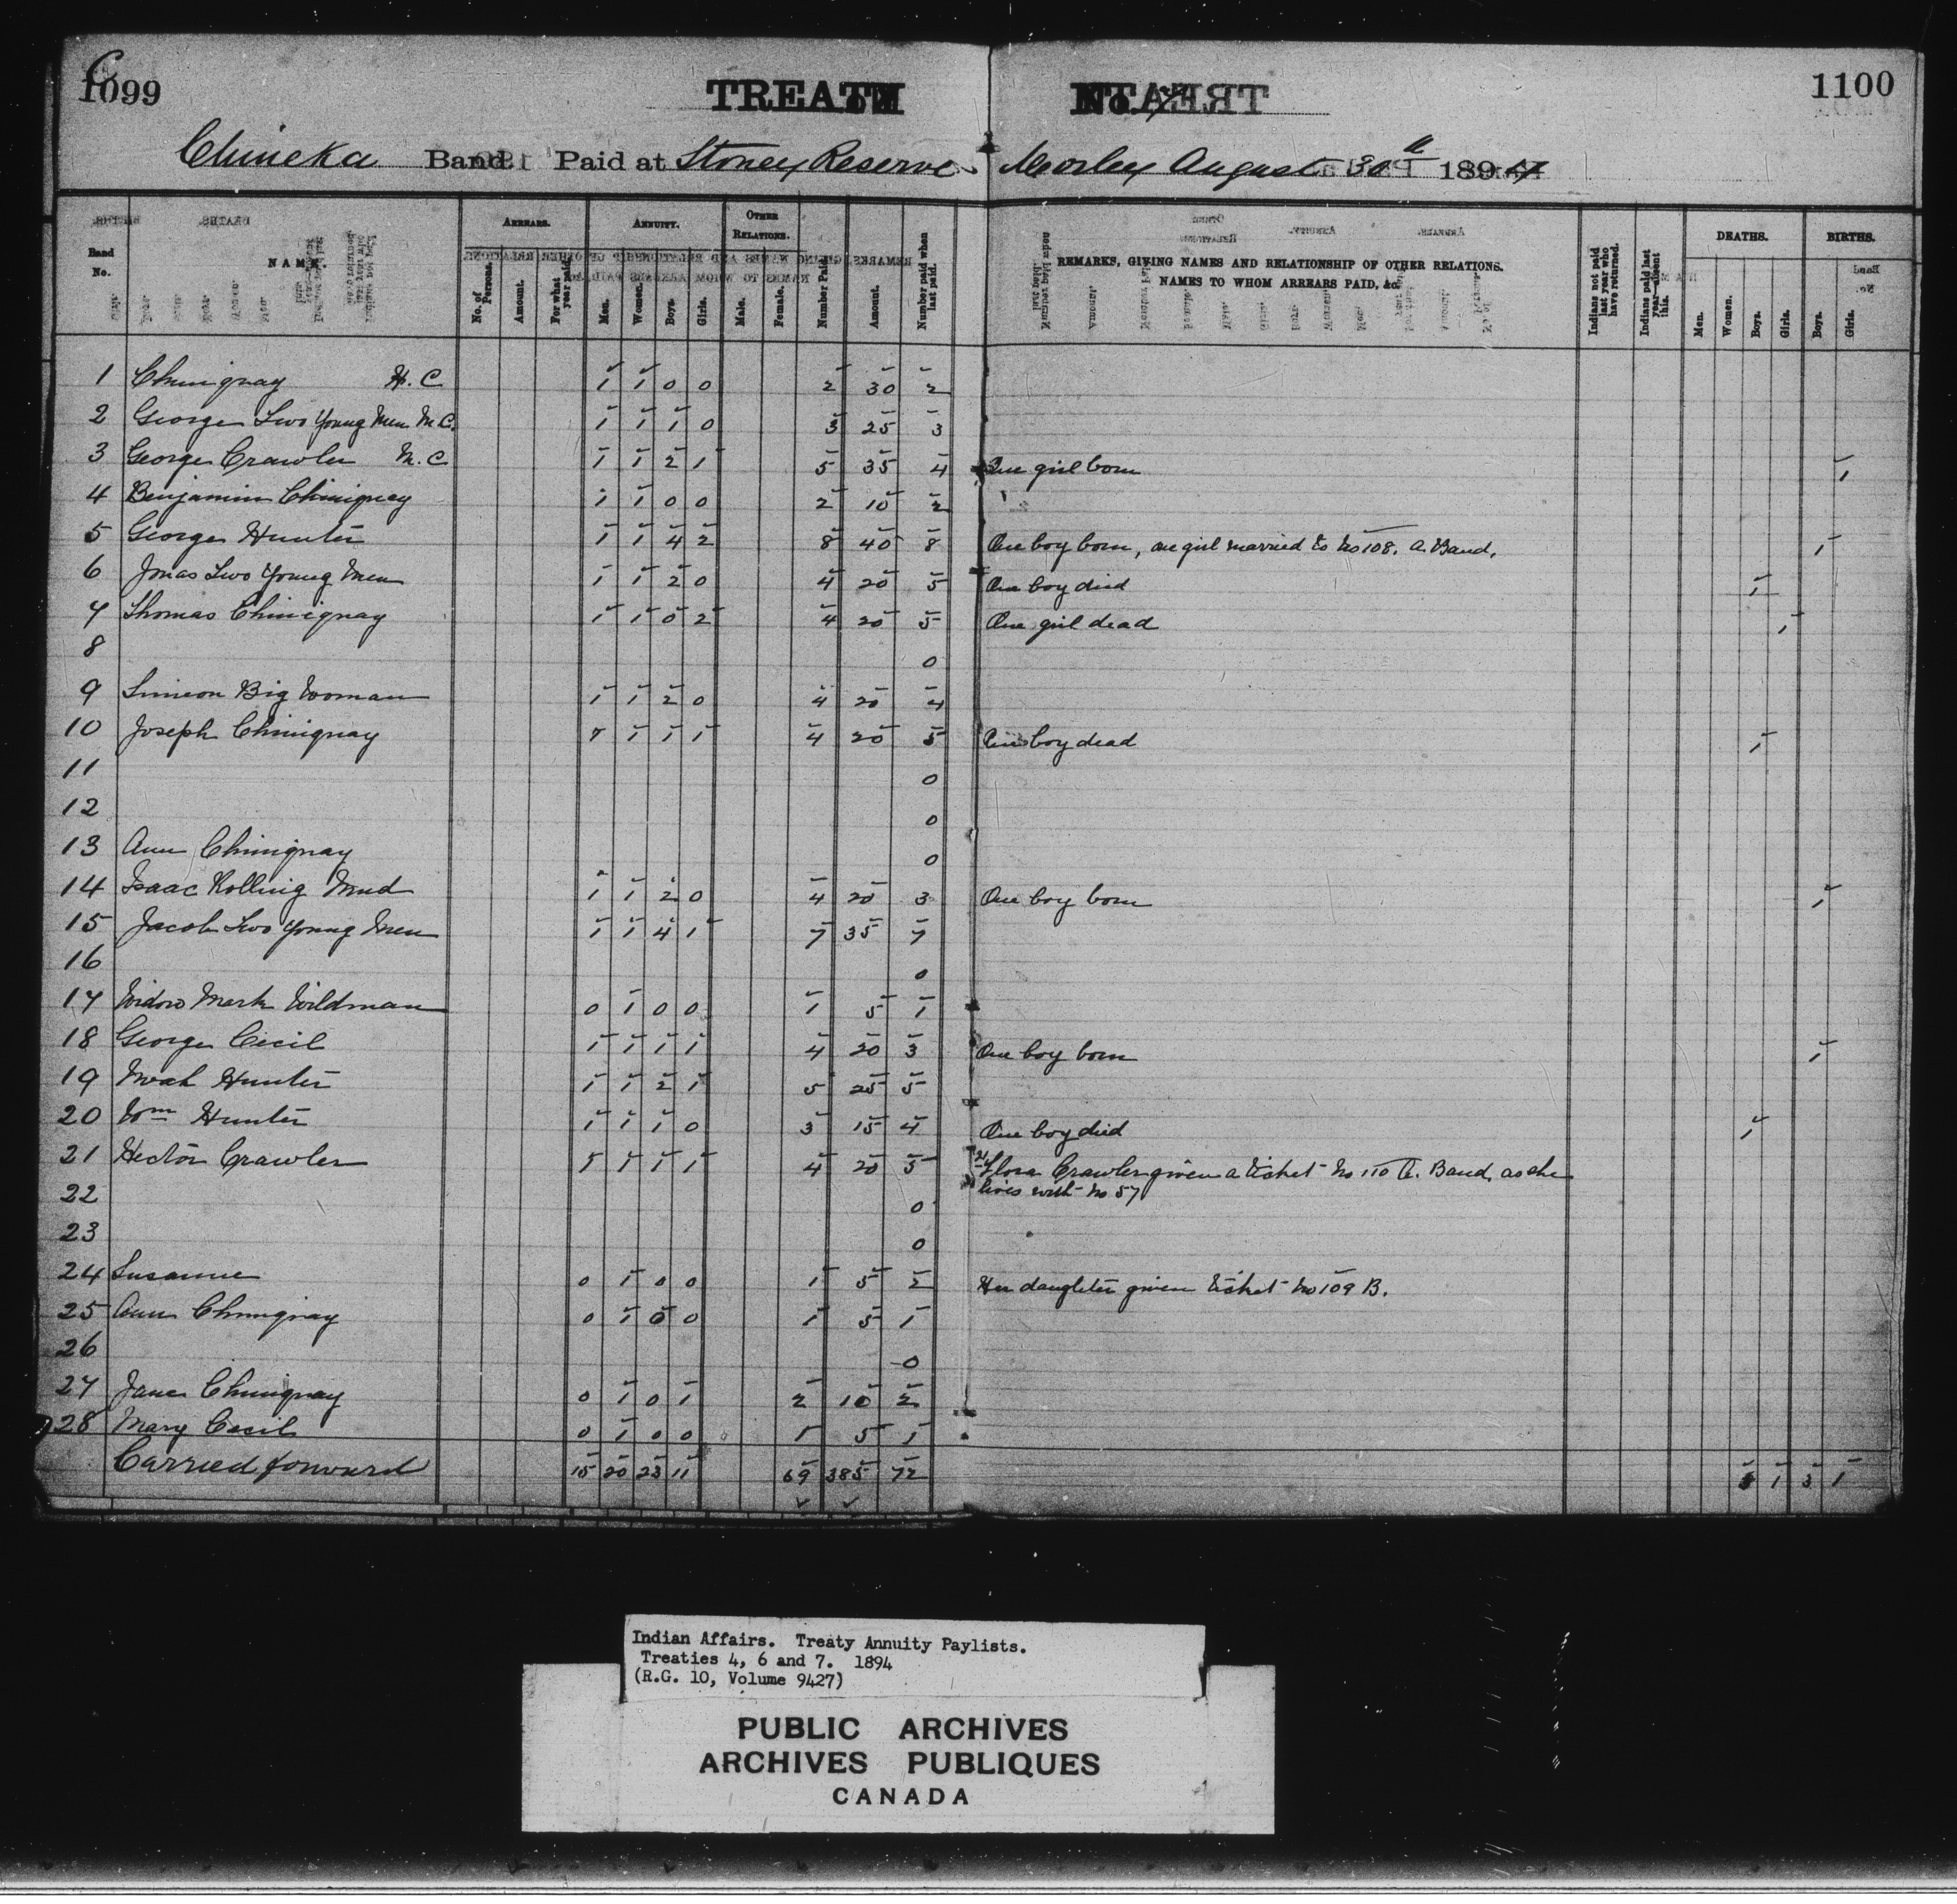 C
1099
TREATY No. 7
1100
Chineka Band. Paid at Stoney Reserve Morley August 30th 1894
Band No. NAME. ARREARS. No. of Persons. Amount. For what year paid. ANNUITY. Men. Women. Boys. Girls. OTHER RELATIONS. Male. Female. Number Paid. Amount. Number paid when last paid. REMARKS, GIVING NAMES AND RELATIONSHIP OF OTHER RELATIONS. NAMES TO WHOM ARREARS PAID, &c. Indians not paid last year who have returned. Indians paid last year—absent this. DEATHS. Men. Women. Boys. Girls. BIRTHS. Boys. Girls.
1 Chiniquay H.C. 1 1 0 0 2 30 2
2 George Two Young Men M.C. 1 1 1 0 3 25 3
3 George Crawler M.C 1 1 2 1 5 35 4 One girl born 1
4 Benjamin Chiniquay 1 1 0 0 2 10 2
5 George Hunter 1 1 4 2 8 40 8 One boy born, one girl married to No 108. A. Band. 1
6 Jonas Two Young Men 1 1 2 0 4 20 5 One boy died 1
7 Thomas Chiniquay 1 1 0 2 4 20 5 One girl dead 1
8 0
9 Simeon Big Woman 1 1 2 0 4 20 4
10 Joseph Chiniquay 1 1 1 1 4 20 5 One boy dead 1
11 0
12 0
13 Ann Chiniquay 0
14 Isaac Rolling Mud 1 1 2 0 4 20 3 One boy born 1
15 Jacob Two Young Men 1 1 4 1 7 35 7
16 0
17 Widow Mark Wildman 0 1 0 0 1 5 1
18 George Cecil 1 1 1 1 4 20 3 One boy born 1
19 Noah Hunter 1 1 2 1 5 25 5
20 Wm Hunter 1 1 1 0 3 15 4 One boy died 1
21 Hector Crawler 1 1 1 1 4 20 5 Flora Crawler given a ticket No 110 A. Band, as she
lives with No 57
22 0
23 0
24 Susanne 0 1 0 0 1 5 2 Her daughter given ticket No 109 B.
25 Ann Chiniquay 0 1 0 0 1 5 1
26 0
27 Jane Chiniquay 0 1 0 1 2 10 2
28 Mary Cecil 0 1 0 0 1 5 1
Carried forward 15 20 23 11 69 385 72 1 3 1
Indian Affairs. Treaty Annuity Paylists.
Treaties 4, 6 and 7. 1894
(R.G. 10, Volume 9427)
PUBLIC ARCHIVES
ARCHIVES PUBLIQUES
CANADA